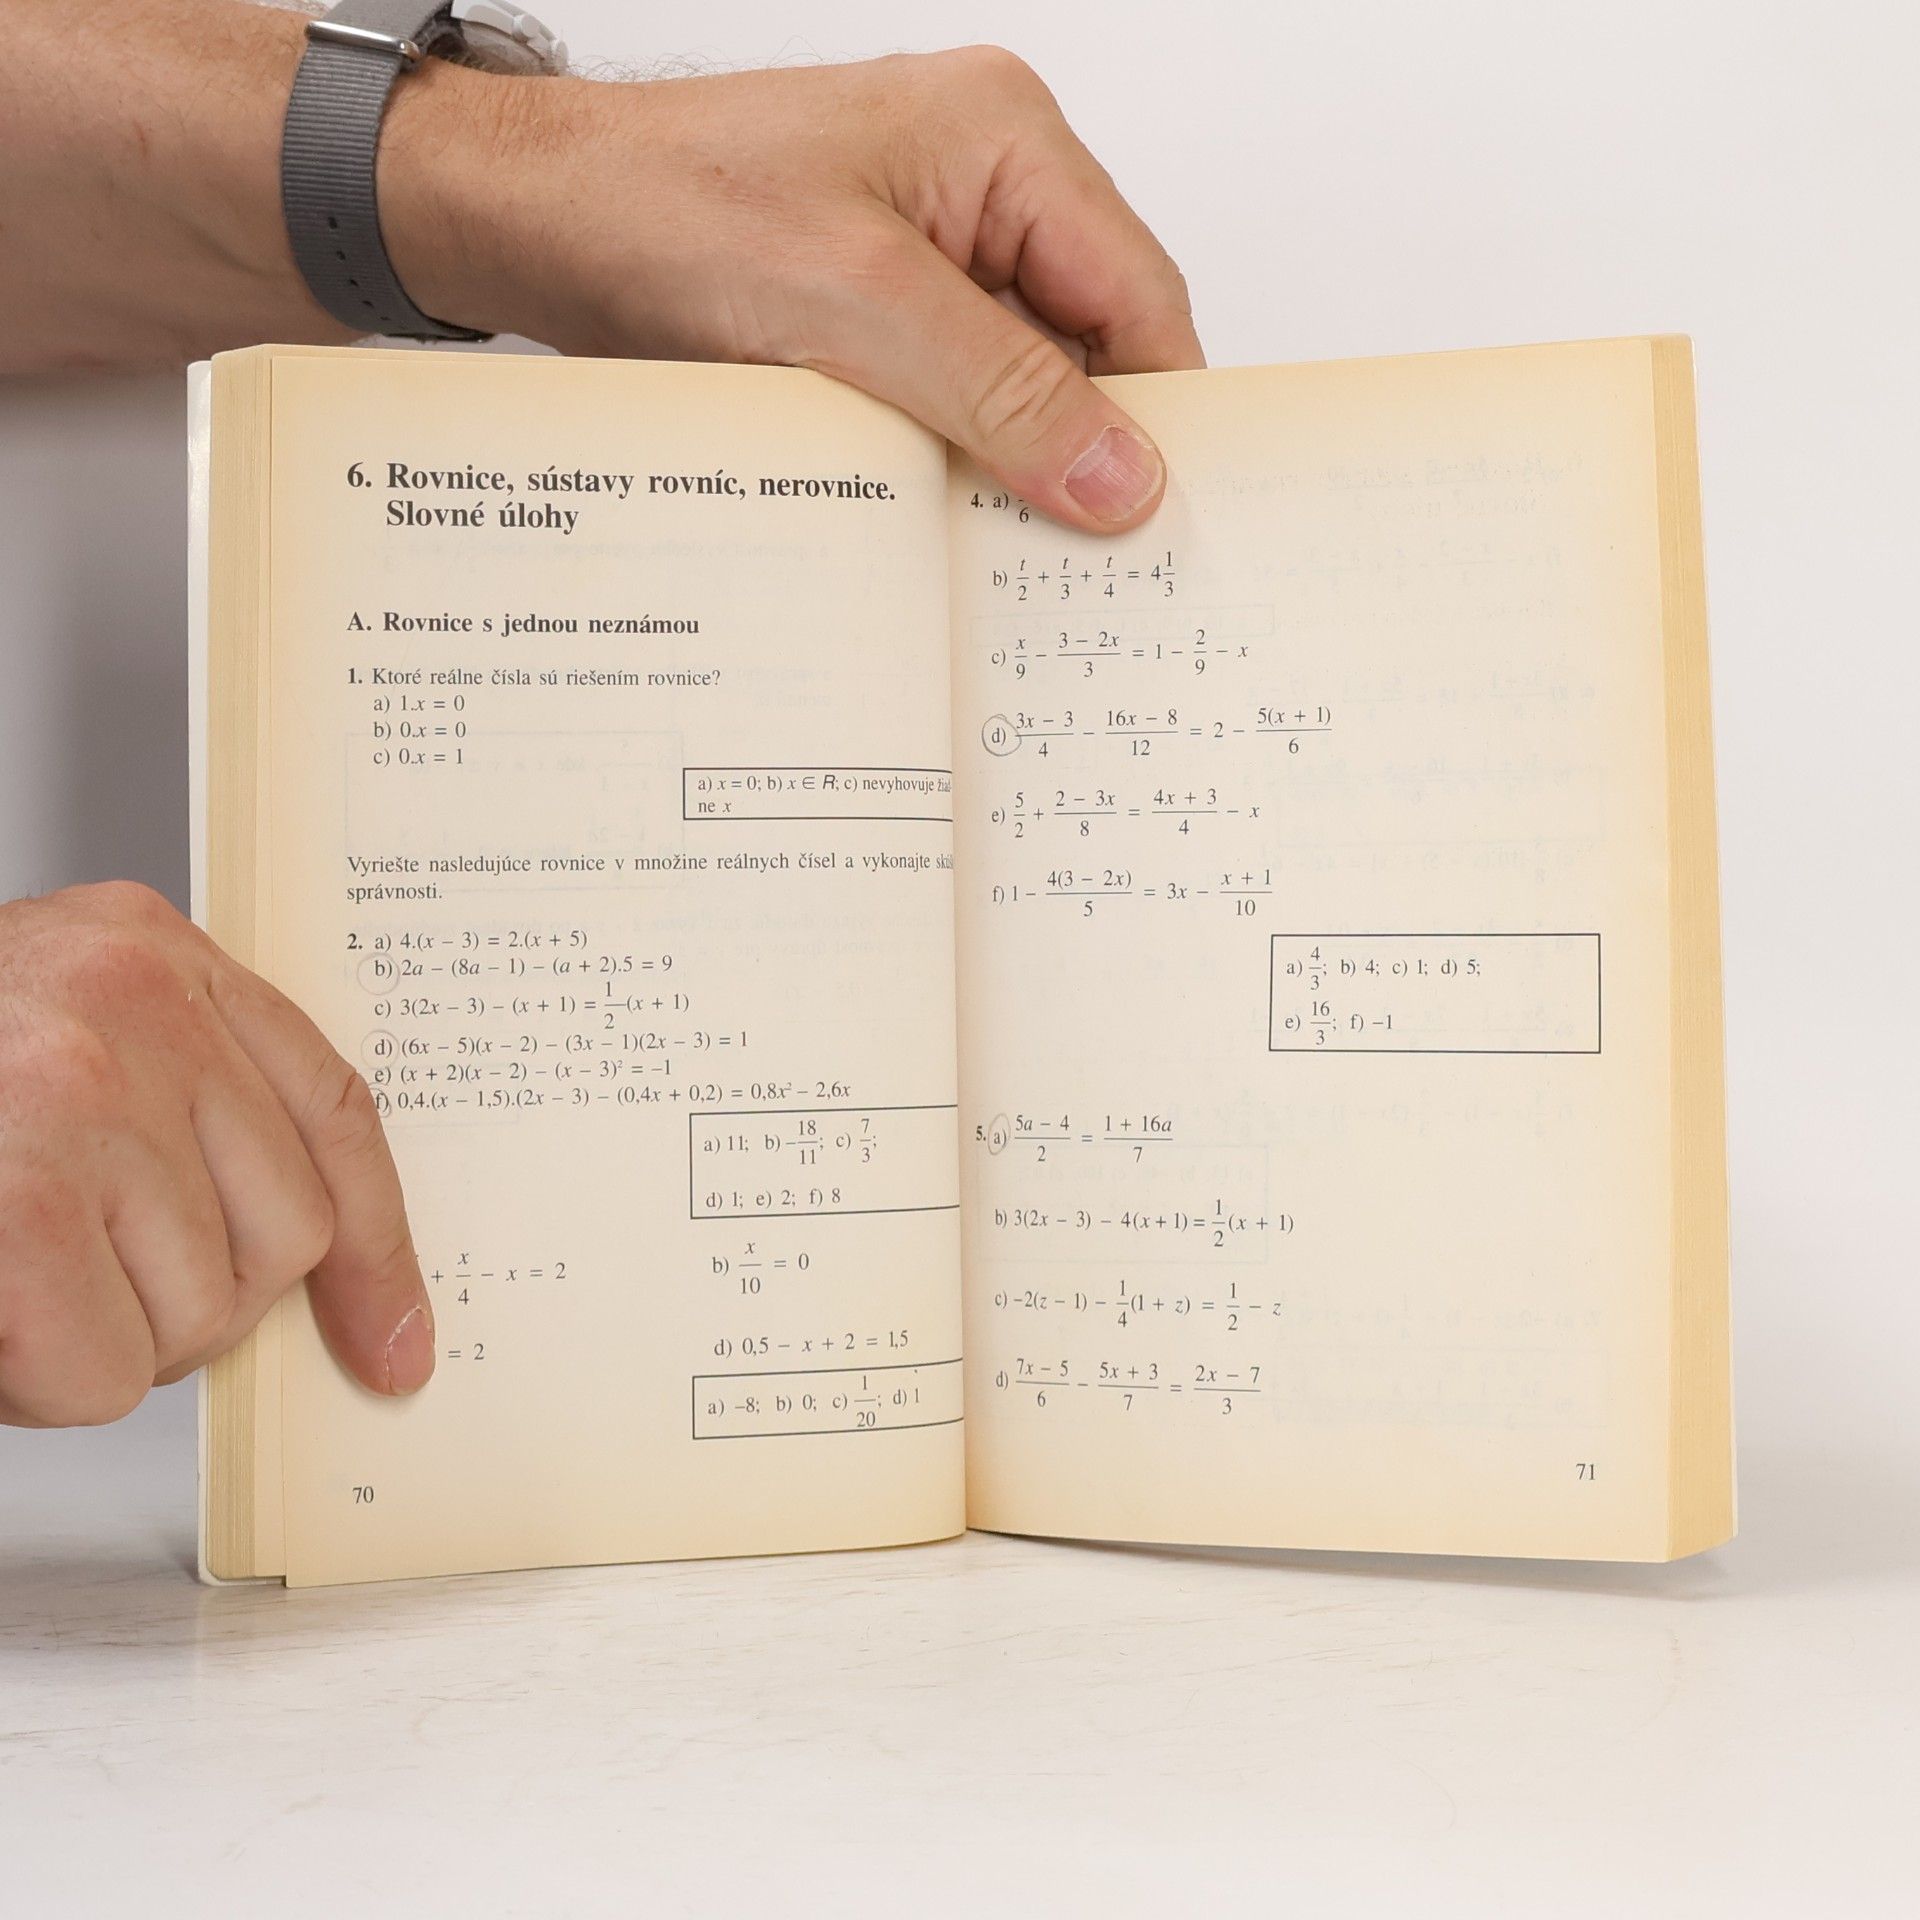 6. Rovnice, sústavy rovníc, nerovnice.
Slovné úlohy
A. Rovnice s jednou neznámou
1. Ktoré reálne čísla sú riešením rovnice?
a) 1.x = 0
b) 0.x = 0
c) 0.x = 1
a) x = 0; b) x ∈ R; c) nevyhovuje
ne x
Vyriešte nasledujúce rovnice v množine reálnych čísel a vykonajte
správnosti.
2. a) 4.(x – 3) = 2.(x + 5)
b) 2a – (8a – 1) – (a + 2).5 = 9
c) 3(2x – 3) – (x + 1) = 1/2 (x + 1)
d) (6x – 5)(x – 2) – (3x – 1)(2x – 3) = 1
e) (x + 2)(x – 2) – (x – 3)² = –1
f) 0,4.(x – 1,5).(2x – 3) – (0,4x + 0,2) = 0,8x² – 2,6x
a) 11; b) –18/11; c) 7/3;
d) 1; e) 2; f) 8
+ x/4 – x = 2
b) x/10 = 0
= 2
d) 0,5 – x + 2 = 1,5
a) –8; b) 0; c) 1/20; d) 1
70
4. a)
6
b) t/2 + t/3 + t/4 = 4 1/3
c) x/9 – (3 – 2x)/3 = 1 – 2/9 – x
d) (3x – 3)/4 – (16x – 8)/12 = 2 – 5(x + 1)/6
e) 5/2 + (2 – 3x)/8 = (4x + 3)/4 – x
f) 1 – 4(3 – 2x)/5 = 3x – (x + 1)/10
a) 4/3; b) 4; c) 1; d) 5;
e) 16/3; f) –1
5. a) (5a – 4)/2 = (1 + 16a)/7
b) 3(2x – 3) – 4(x + 1) = 1/2 (x + 1)
c) –2(z – 1) – 1/4 (1 + z) = 1/2 – z
d) (7x – 5)/6 – (5x + 3)/7 = (2x – 7)/3
71